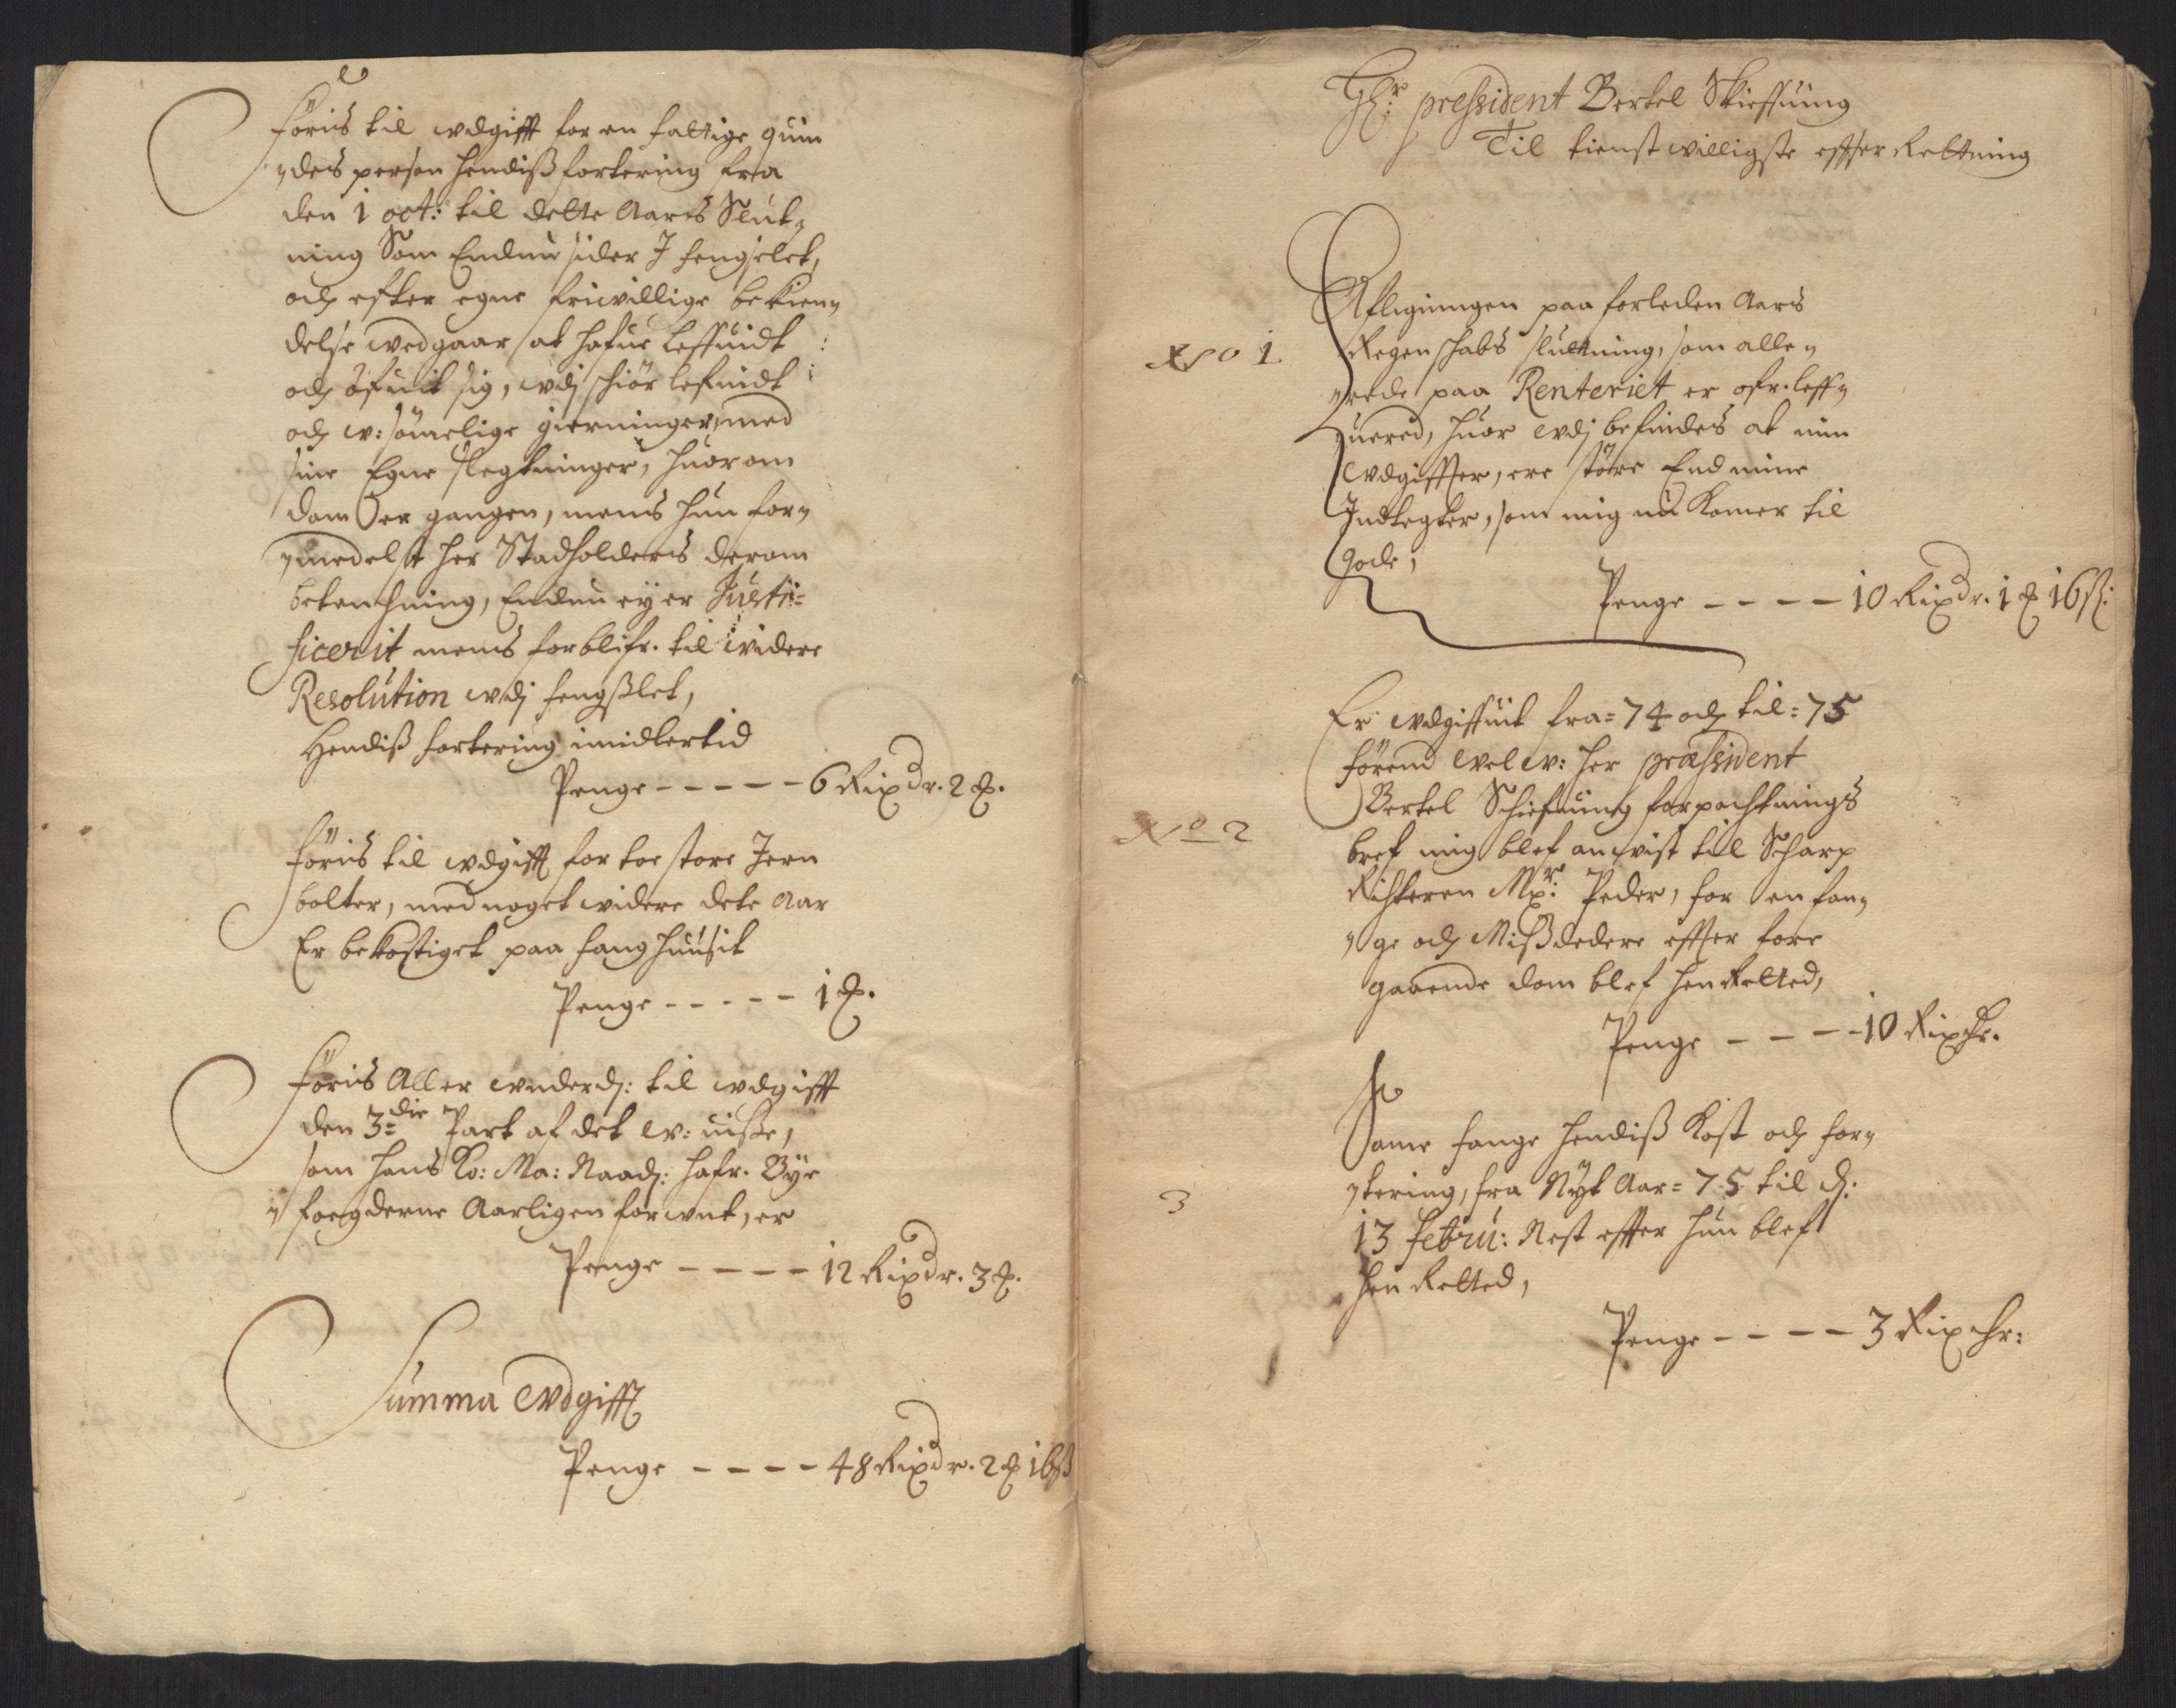 Føris til wdgifft for en fattige quin
des person hendiß fortering fra
den 1 oct: til dette Aars Slut,
ning Som Endnu sider J fengselet,
och efter egne friwillige bekien,
delse wedgaar, at hafue leffuidt
och øfuit sig, wdj schiør lefnidt
och w:sømelige gierninger, med
sine Egne slegtninger, huorom
dom er gangen, mens hun for,
medelst her Stadholders derom
betenchning, Endnu ey er Justi=
ficerit mens forblifr. til widere
Resolution wdj fengßlet,
Hendiß fortering imidlertid
Penge - - - - - 6 Rixdr. 2 ꝧ.
Føris til wdgifft for toe store Jern
bolter, med noget widere dete Aar
Er bekostiget paa fanghuusit
Penge - - - - - 1 ꝧ.
Føris Aller wnderd: til wdgifft
den 3die Part af det w:uiße,
som hans Ko: Ma: Naad: hafr. Bye
fogderne Aarligen forwnt, er
Penge - - - - 12 Rixdr. 3 ꝧ.
Summa Wdgifft
Penge - - - - 48 Rixdr. 2 ꝧ 16 ß
Hr: president Bertel Skieffuing
Til tienstwilligste effterRettning
No 1.
Aflegningen paa forleden Aars
Regenschabs slutning, som alle,
rede paa Renteriet er ofr.leff,
uered, huor wdj befindes at min
wdgiffter, ere større End mine
Indtegter, som mig nu Komer til
gode,
Penge - - - - 10 Rixdr. 1 ꝧ 16 ß:
No 2
Er wdgiffuit fra= 74 och til= 75
førend welw: her præsident
Bertel Schiefuing forpachtnings
bref mig blef anwist til Scharp
Richteren Mr: Peder, for en fan,
ge och Mißdedere effter fore
gaaende dom blef henRetted,
Penge - - - - 10 Rixdr.
3
Same fange hendiß Kost och for,
tering, fra Nyt Aar= 75 til d:
13 febru: Nest effter hun blef
hen Retted,
Penge - - - - 3 Rixdr: